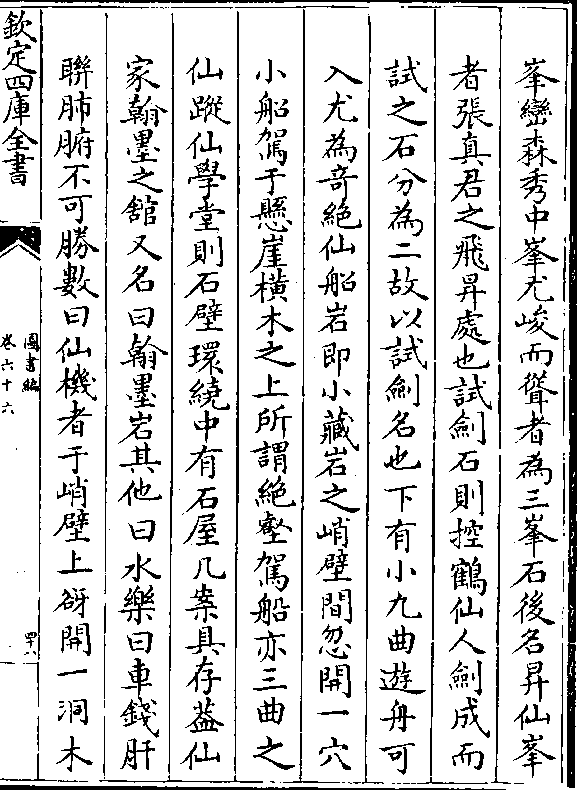 峯巒森秀中峯尤峻而聳者為三峯石後名昇仙峯
者張真君之飛昇處也試劍石則控鶴仙人劍成而
試之石分為二故以試劍名也下有小九曲遊舟可
入尤為竒絶仙船岩即小藏岩之峭壁間忽開一穴
小船駕于懸崖橫木之上所謂絶壑駕船亦三曲之
仙蹤仙學堂則石壁環繞中有石屋几案具存葢仙
家翰墨之舘又名曰翰墨岩其他曰水樂曰車錢肝
聯肺腑不可勝數曰仙機者于峭壁上谺開一洞木
欽定四庫全書
圖書編
卷六十六